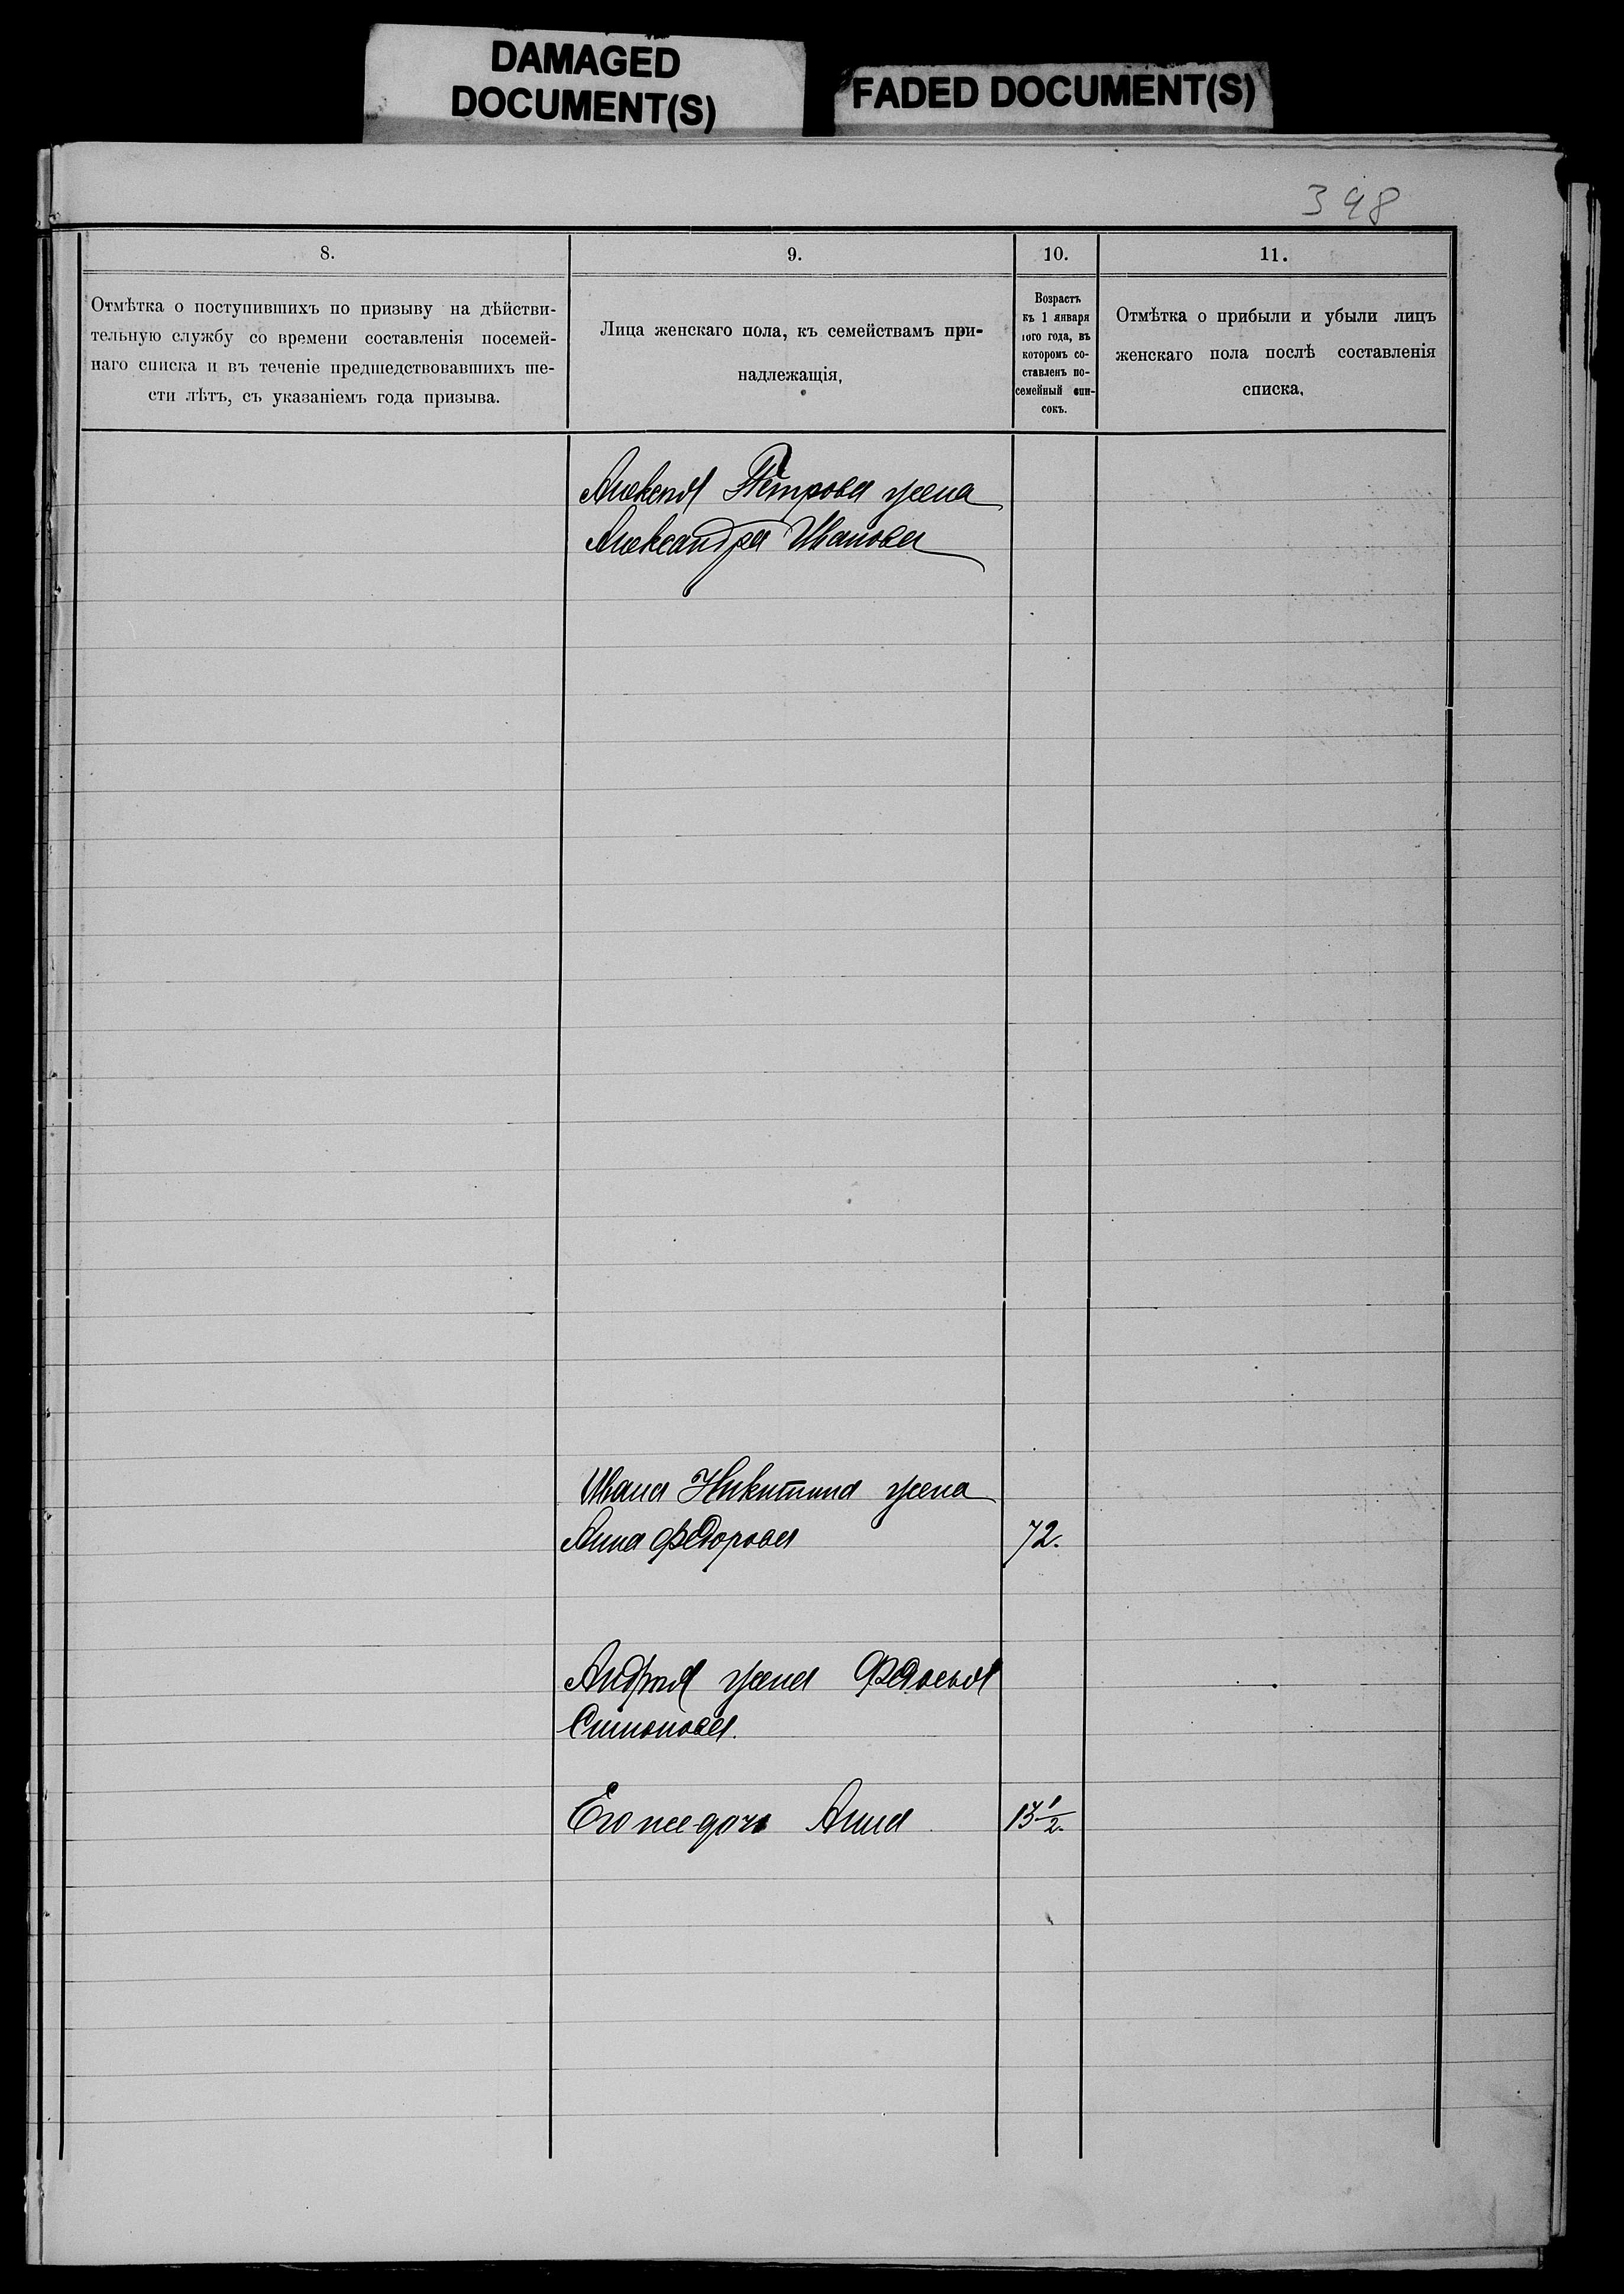 DAMAGED
DOCUMENT(S)
FADED DOCUMENT(S)
398
8.
9.
10.
11.
Отмѣтка о поступившихъ по призыву на дѣйстви-
тельную службу со времени составленія посемей-
наго списка и въ теченіе предшедствовавшихъ ше-
сти лѣтъ, съ указаніемъ года призыва.
Лица женскаго пола, къ семействамъ при-
надлежащія,
Возрастъ
къ 1 января
того года, въ
которомъ со-
ставленъ по-
семейный спи-
сокъ.
Отмѣтка о прибыли и убыли лицъ
женскаго пола послѣ составленія
списка,
Алексѣя Петрова жена
Александра Иванова
Ивана Никитина жена
Анна Федорова 72.
Андрея жена Федосья
Симонова.
Его же дочь Анна 13 1/2.